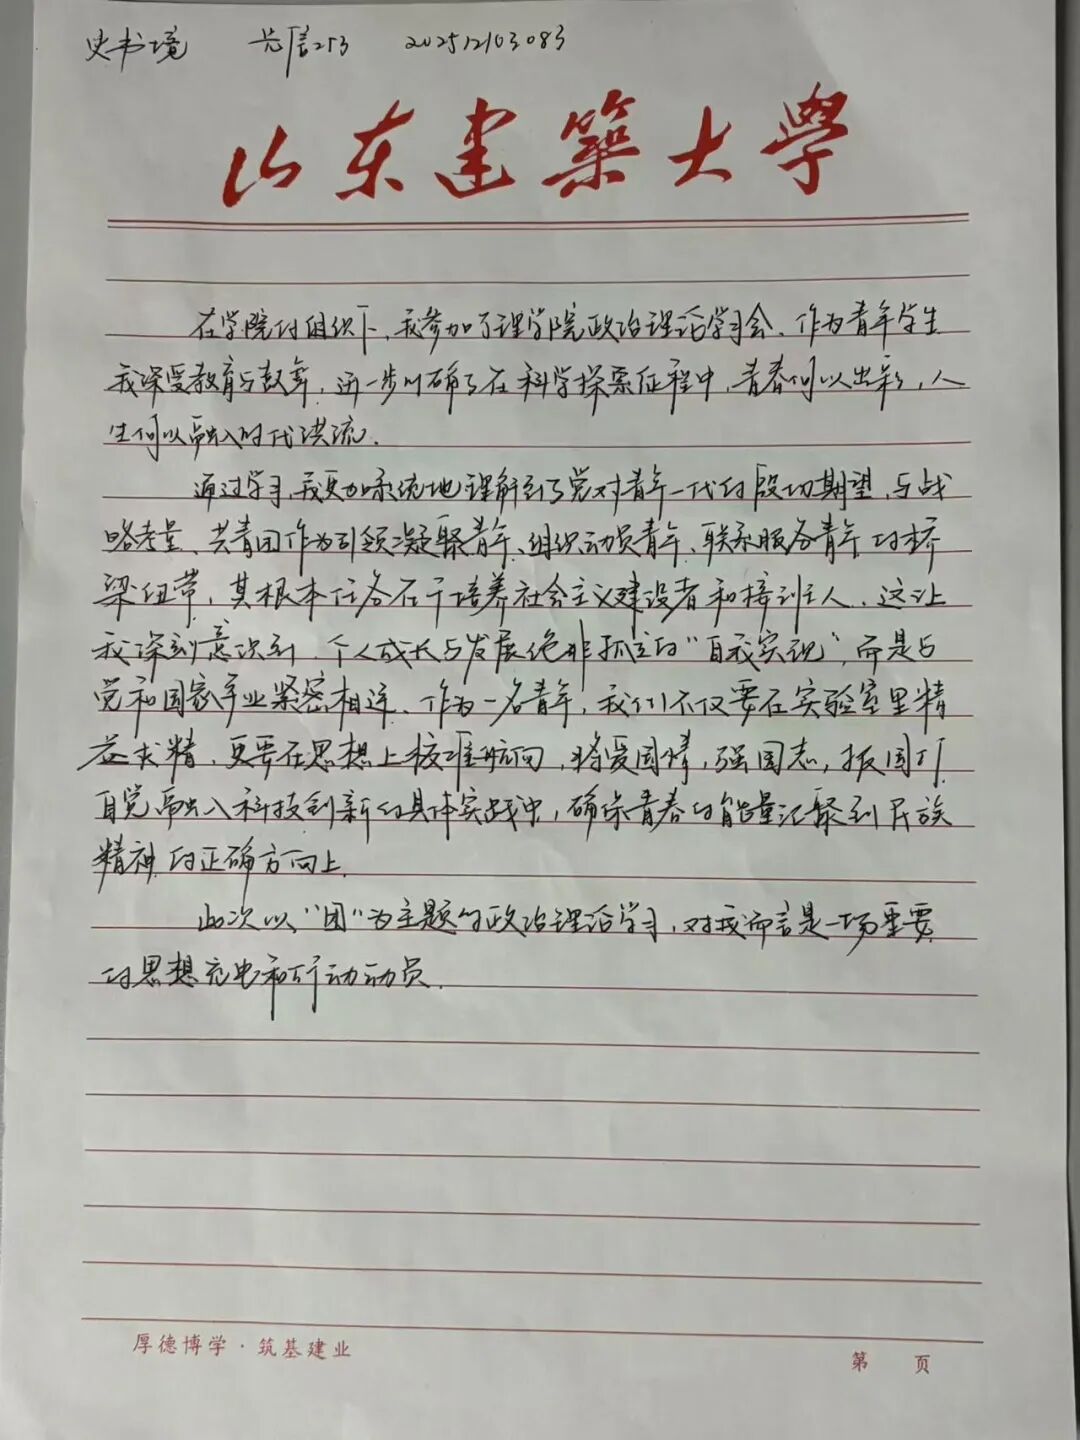 史书境 光信253 202512103083
山东建築大学
在学院的组织下，我参加了理学院政治理论学习会，作为青年学生
我深受教育与鼓舞，进一步明确了在科学探索征程中，青春何以出彩，人
生何以融入时代洪流．
通过学习，我更加系统地理解到了党对青年一代的殷切期望，与战
略考量、共青团作为引领凝聚青年、组织动员青年、联系服务青年的桥
梁纽带，其根本任务在于培养社会主义建设者和接班人．这让
我深刻意识到，个人成长与发展绝非孤立的“自我实现”，而是与
党和国家事业紧密相连．作为一名青年，我们不仅要在实验室里精
益求精，更要在思想上校准航向，将爱国情，强国志，报国行
自觉融入科技创新的具体实践中，确保青春的能量汇聚到民族
精神的正确方向上．
此次以“团”为主题的政治理论学习，对我而言是一场重要
的思想充电和行动动员．
厚德博学·筑基建业
第 页